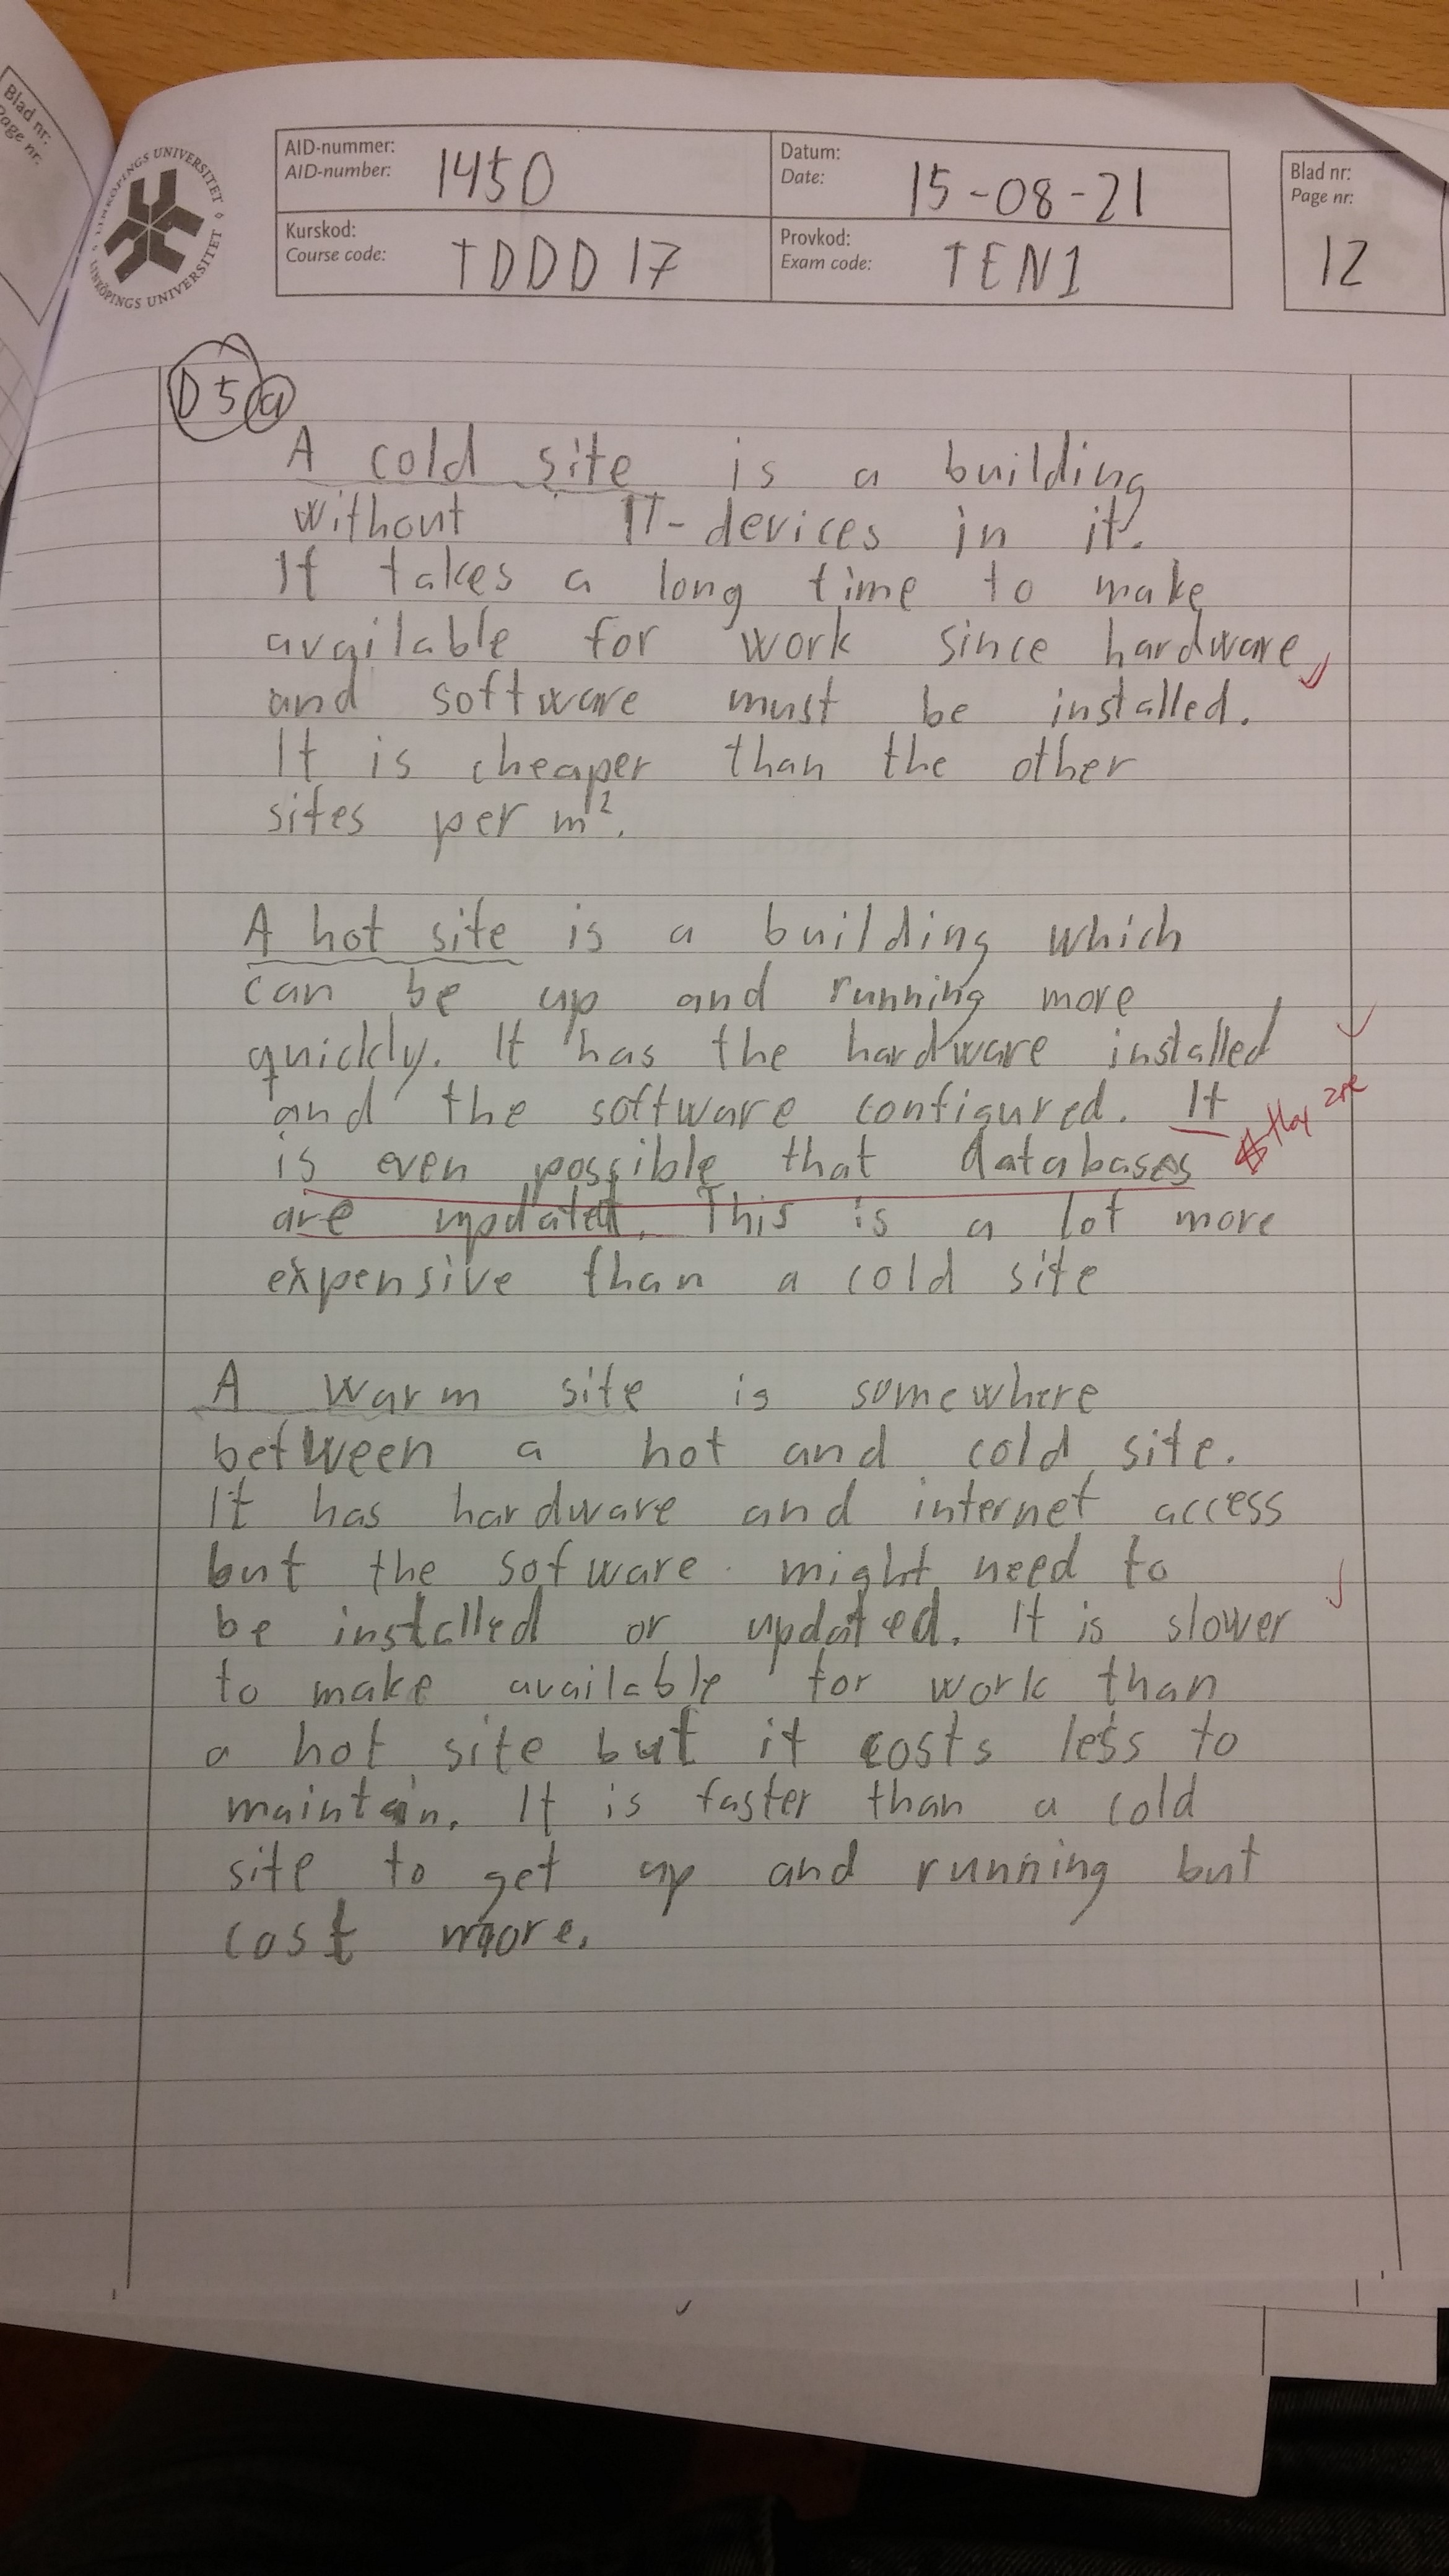 Blad nr:
Page nr:
LINKÖPINGS UNIVERSITET
LINKÖPINGS UNIVERSITET
AID-nummer:
AID-number:
1450
Datum:
Date:
15-08-21
Blad nr:
Page nr:
12
Kurskod:
Course code:
TDDD17
Provkod:
Exam code:
TEN1
D5 a
A cold site is a building
without IT-devices in it.
It takes a long time to make
available for work since hardware
and software must be installed.
It is cheaper than the other
sites per m².
A hot site is a building which
can be up and running more
quickly. It has the hardware installed
and the software configured. It
they are
is even possible that databases
are updated. This is a lot more
expensive than a cold site
A warm site is somewhere
between a hot and cold site.
It has hardware and internet access
but the sofware might need to
be installed or updated. It is slower
to make available for work than
a hot site but it costs less to
maintain. It is faster than a cold
site to get up and running but
cost more.